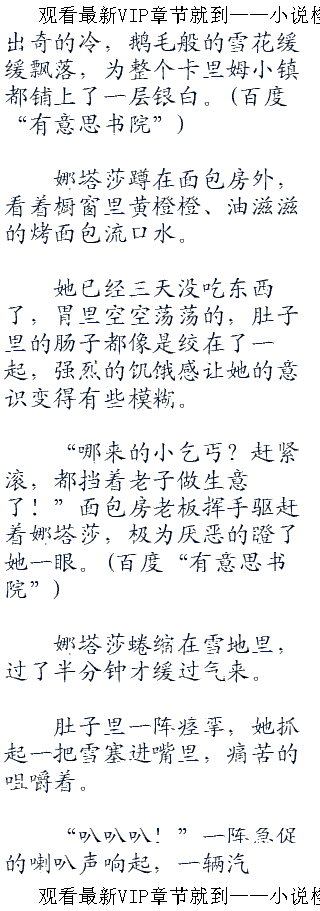 观看最新VIP章节就到——小说检
出奇的冷，鹅毛般的雪花缓
缓飘落，为整个卡里姆小镇
都铺上了一层银白。(百度
“有意思书院”)
娜塔莎蹲在面包房外，
看着橱窗里黄橙橙、油滋滋
的烤面包流口水。
她已经三天没吃东西
了，胃里空空荡荡的，肚子
里的肠子都像是绞在了一
起，强烈的饥饿感让她的意
识变得有些模糊。
“哪来的小乞丐？赶紧
滚，都挡着老子做生意
了！”面包房老板挥手驱赶
着娜塔莎，极为厌恶的瞪了
她一眼。(百度“有意思书
院”)
娜塔莎蜷缩在雪地里，
过了半分钟才缓过气来。
肚子里一阵痉挛，她抓
起一把雪塞进嘴里，痛苦的
咀嚼着。
“叭叭叭！”一阵急促
的喇叭声响起，一辆汽
观看最新VIP章节就到——小说检